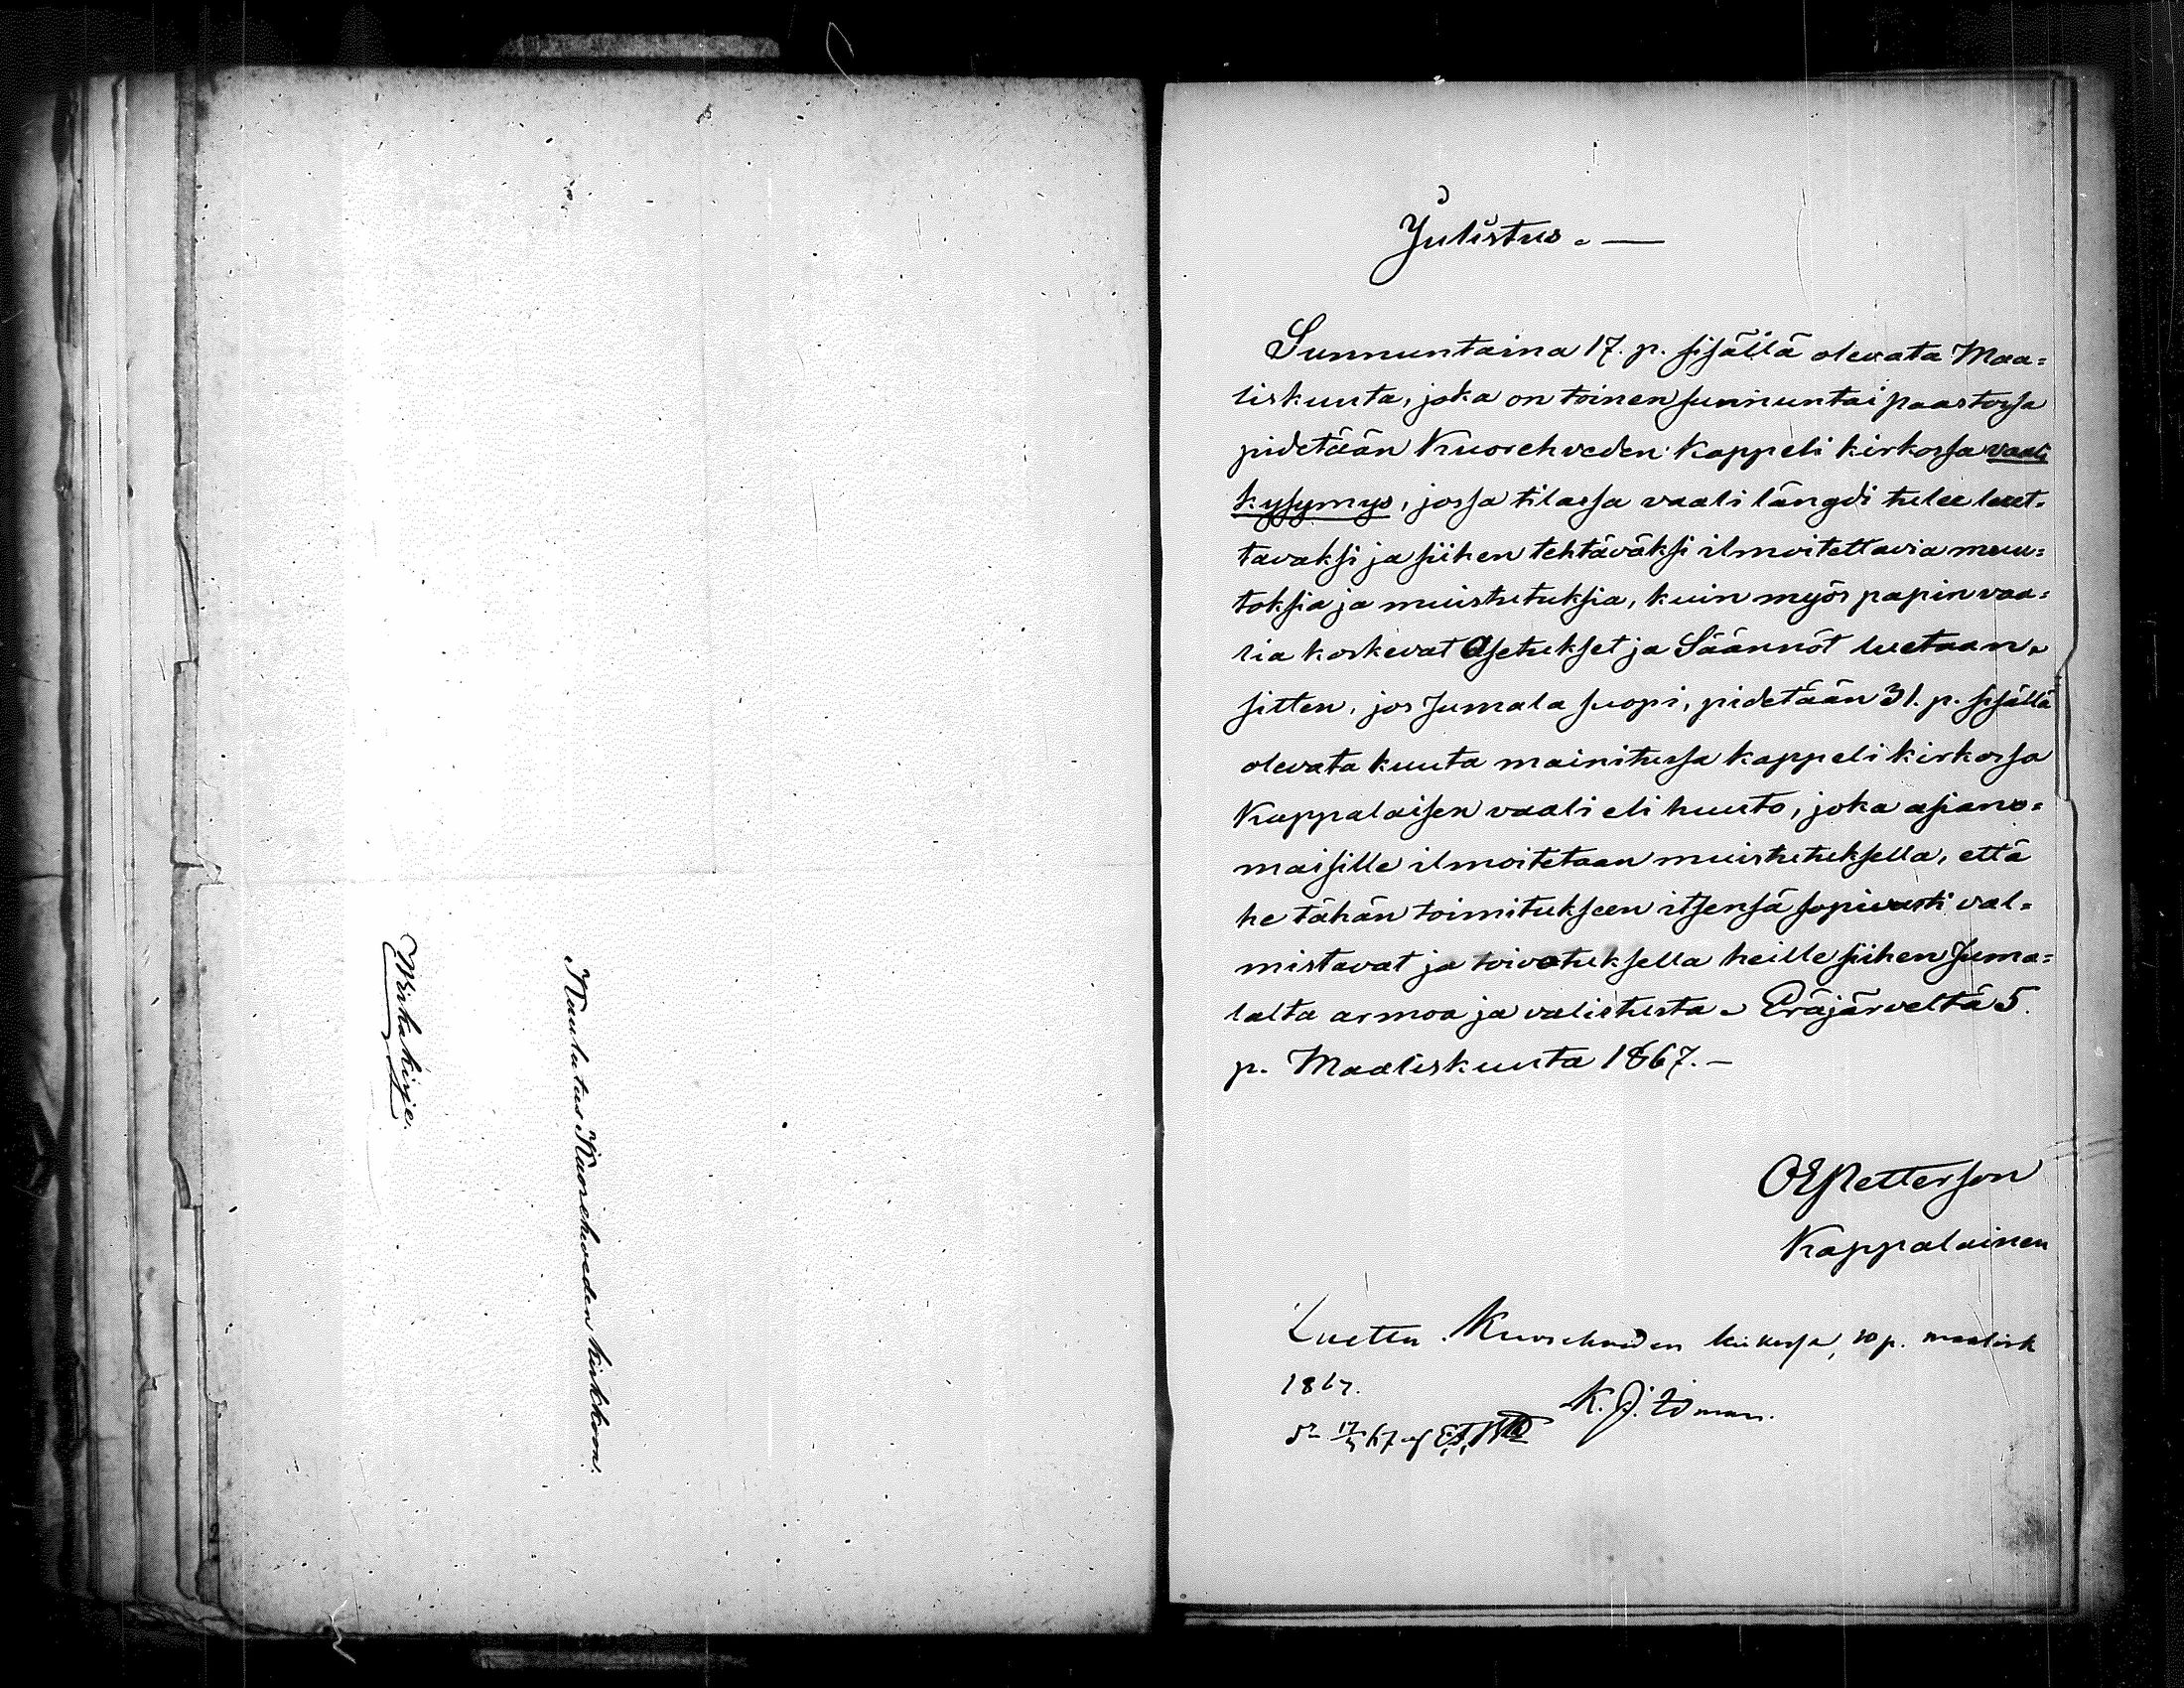 Wirka kirje.
Kuulutus Kuorehveden kirkkoon.
Julistus. —
Sunnuntaina 17. p. sisällä olevata Maa=
liskuuta, joka on toinen sunnuntai paastossa
pidetään Kuorehveden Kappeli kirkossa vaali
kysymys, jossa tilassa vaali längdi tulee luet=
tavaksi ja siihen tehtäväksi ilmoitettavia muu=
toksia ja muistutuksia, kuin myös papin vaa=
lia koskevat Asetukset ja Säännöt luetaan.
sitten, jos Jumala suopi, pidetään 31. p. sisällä
olevata kuuta mainitussa kappeli kirkossa
Kappalaisen vaali eli huuto, joka asiano=
maisille ilmoitetaan muistutuksella, että
he tähän toimitukseen itsensä sopivasti val=
mistavat ja toivotuksella heille siihen Juma=
lalta armoa ja valistusta. Eräjärveltä 5.
p. Maaliskuuta 1867. —
OEPetterson
Kappalainen
Luettu Kuorehveden kirkossa, 10 p. maalisk
1867.
K. J.